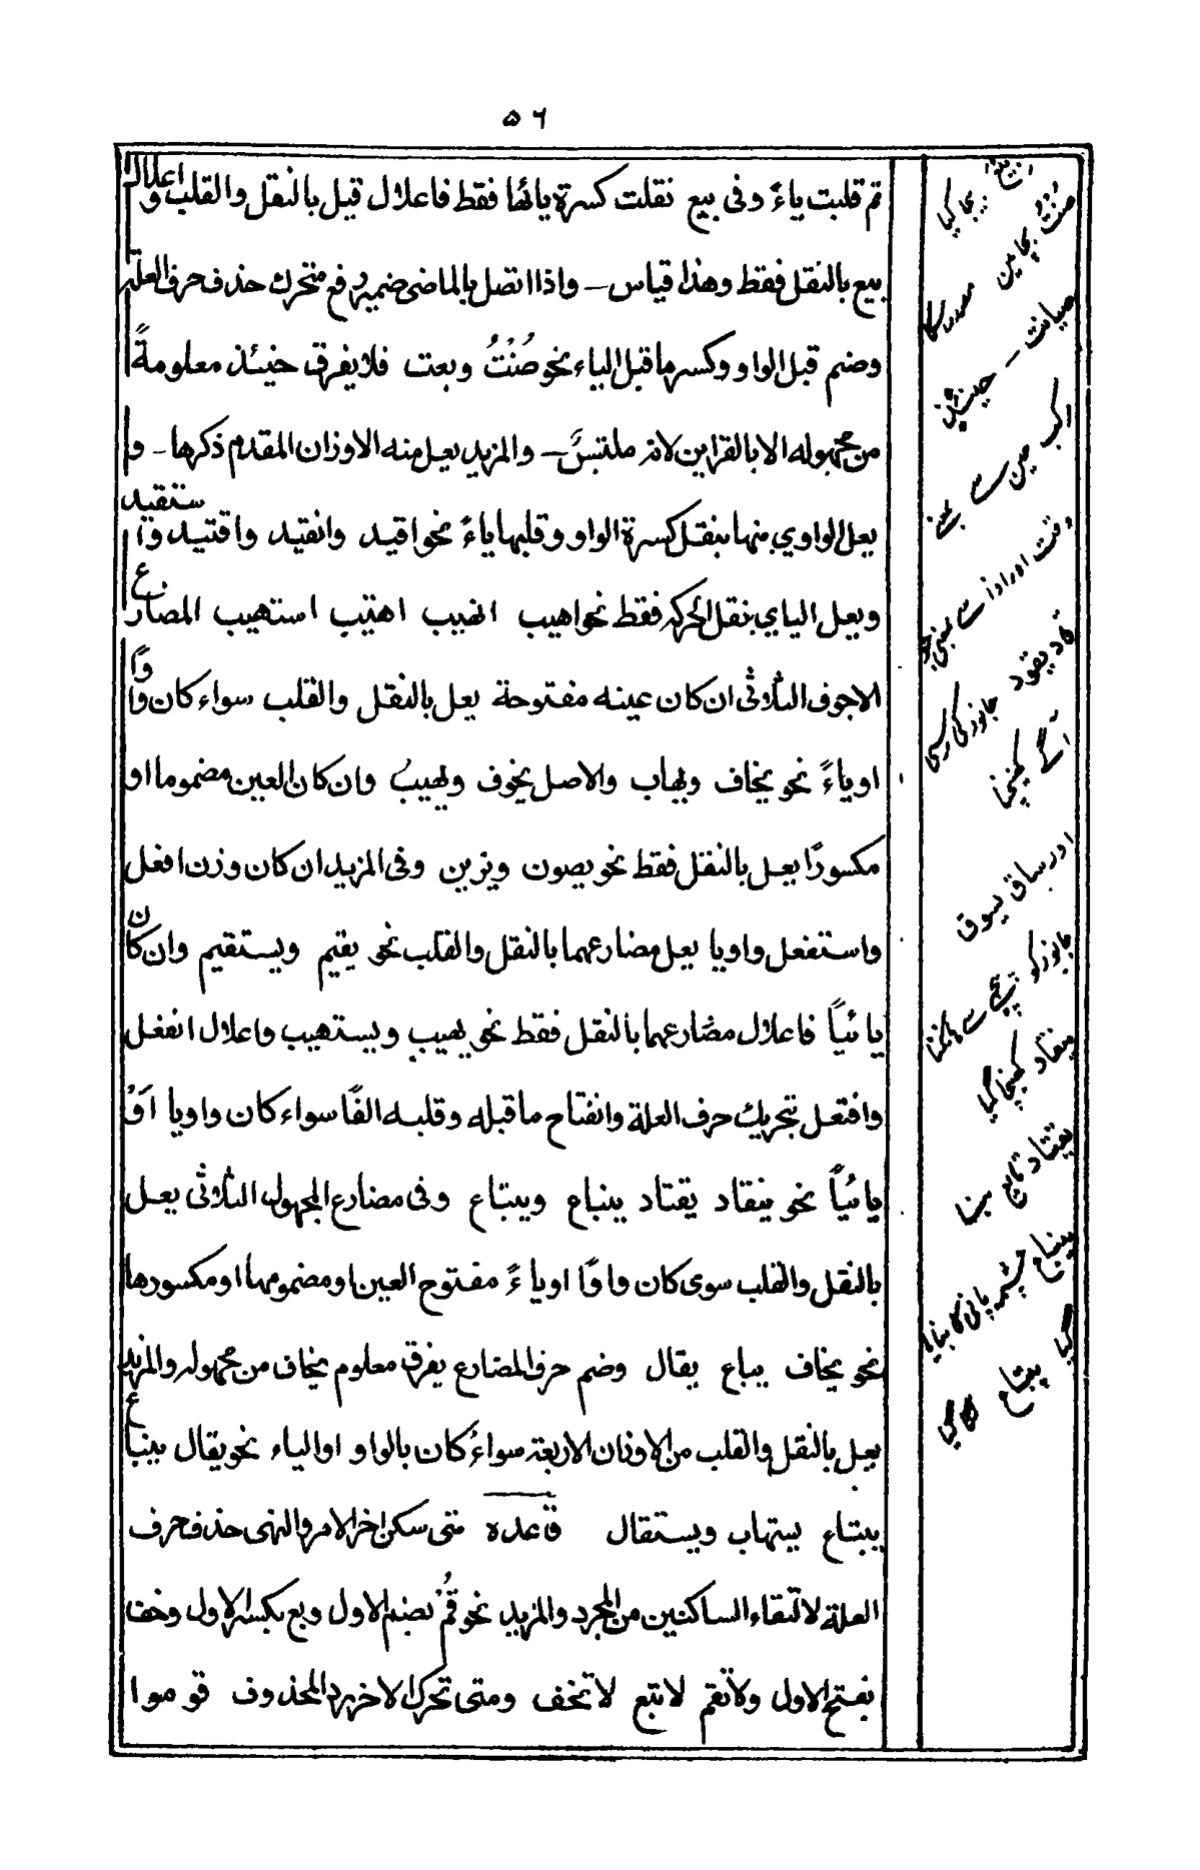 ٥٦
ثم قلبت ياءً وفى بيع نقلت كسرة يائها فقط فاعلال قيل بالنقل والقلب واعلال
بيع بالنقل فقط وهذا قياس — واذا اتصل بالماضى ضمير رفع متحرك حذف حرف العلة
وضم قبل الواو وكسر ماقبل الياء نحو صُنْتُ وبعت فلا يفرق حنيئذ معلومةً
من مجهوله الا بالقراين لانه ملتبسٌ — والمزيد يعل منه الاوزان المقدم ذكرها - و
يعل الواوي منها بنقل كسرة الواو وقلبها ياءً نحو اقيد وانقيد واقتيد وا ستقيد
ويعل الياي بنقل الحركه فقط نحو اهيب انهيب اهتيب استهيب المضارع
الاجوف الثلاثى ان كان عينه مفتوحة يعل بالنقل والقلب سواء كان واوًا
او ياءً نحو يخاف ويهاب والاصل يخوف ويهيبُ وان كان العين مضموما او
مكسورًا يعل بالنقل فقط نحو يصون ويزين وفى المزيد ان كان وزن افعل
واستفعل واويا يعل مضارعهما بالنقل والقلب نحو يقيم ويستقيم وان كان
يائيًا فاعلال مضارعهما بالنقل فقط نحو يهيب ويستهيب واعلال انفعل
وافتعل بتحريك حرف العلة وانفتاح ماقبله وقلبه الفًا سواء كان واويا اَوْ
يائيًا نحو ينقاد يقتاد ينباع ويبتاع وفى مضارع المجهول الثلاثى يعل
بالنقل والقلب سوى كان واوًا او ياءً مفتوح العين او مضمومها او مكسورها
نحو يخاف يباع يقال وضم حرف المضارع يفرق معلوم يخاف من مجهوله والمزيد
يعل بالنقل والقلب من الاوزان الاربعة سواءٌ كان بالواو او الياء نحو يقال ينباع
يبتاع يستهاب ويستقال قاعده متى سكن اخر الامر والنهى حذف حرف
العلة لالتقاء الساكنين من المجرد والمزيد نحو قُمْ بضم الاول وبع بكسر الاول وخف
بفتح الاول ولاتقم لاتبع لاتخف ومتى تحرك الاخر يرد المحذوف قوموا
صنت بچامين
صيانت — حينئذٍ
قاد يقود جانور كى رسى
آگے كهينچنا
اور ساق يسوق
جانور كو پيچهے سے هانكنا
منقاد كهينچا گيا
يقتاد تابع بننا
ينباع چشمہ پانى كا بنايا
گيا يبتاع